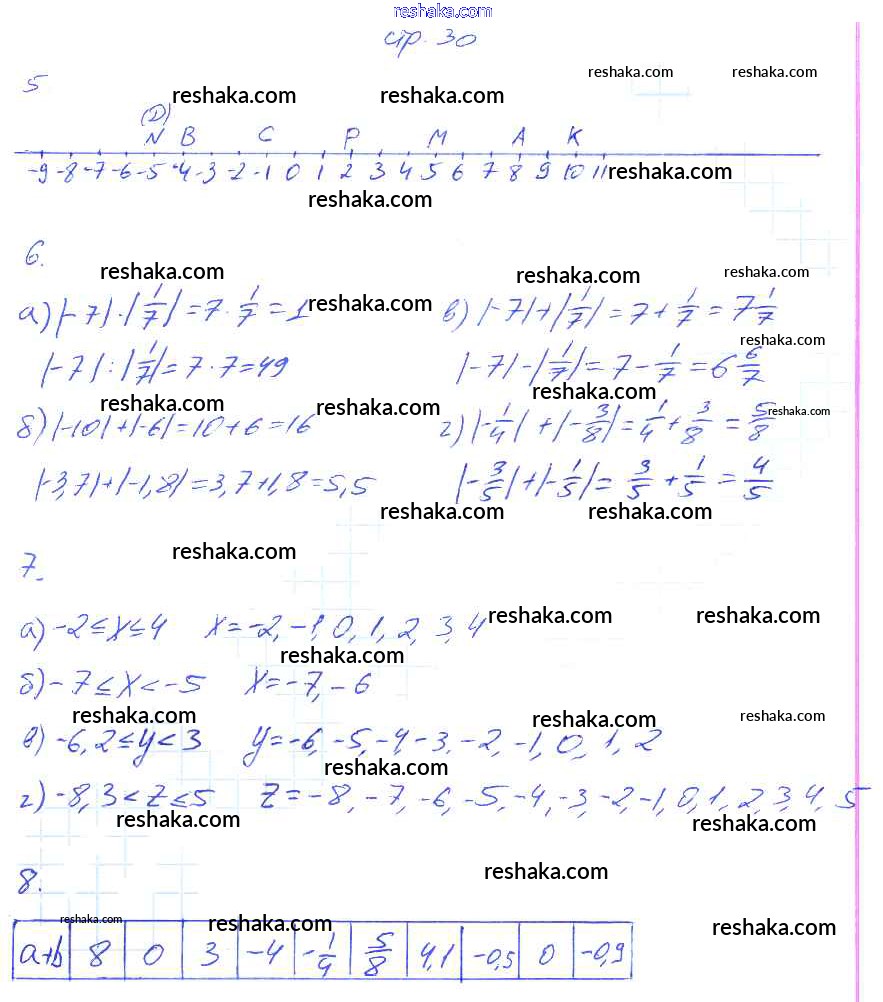 reshaka.com
стр. 30
5 reshaka.com reshaka.com reshaka.com reshaka.com
(D)
N B C P M A K
-9 -8 -7 -6 -5 -4 -3 -2 -1 0 1 2 3 4 5 6 7 8 9 10 11 reshaka.com
reshaka.com
6.
reshaka.com reshaka.com reshaka.com
а) |-7|·|1/7| = 7·1/7 = 1 reshaka.com в) |-7|+|1/7| = 7+1/7 = 7 1/7
reshaka.com
|-7|:|1/7| = 7·7 = 49 |-7|-|1/7| = 7-1/7 = 6 6/7
reshaka.com reshaka.com reshaka.com reshaka.com
б) |-10|+|-6| = 10+6 = 16 г) |-1/4|+|-3/8| = 1/4+3/8 = 5/8
|-3,7|+|-1,8| = 3,7+1,8 = 5,5 |-3/5|+|-1/5| = 3/5+1/5 = 4/5
reshaka.com reshaka.com
reshaka.com
7.
reshaka.com reshaka.com
а) -2≤x≤4 x=-2, -1, 0, 1, 2, 3, 4
reshaka.com
б) -7≤x<-5 x=-7, -6
reshaka.com reshaka.com reshaka.com
в) -6,2≤y<3 y=-6, -5, -4, -3, -2, -1, 0, 1, 2
reshaka.com
г) -8,3<z≤5 z=-8, -7, -6, -5, -4, -3, -2, -1, 0, 1, 2, 3, 4, 5
reshaka.com reshaka.com
8. reshaka.com
reshaka.com reshaka.com reshaka.com
a+b 8 0 3 -4 -1/4 5/8 4,1 -0,5 0 -0,9